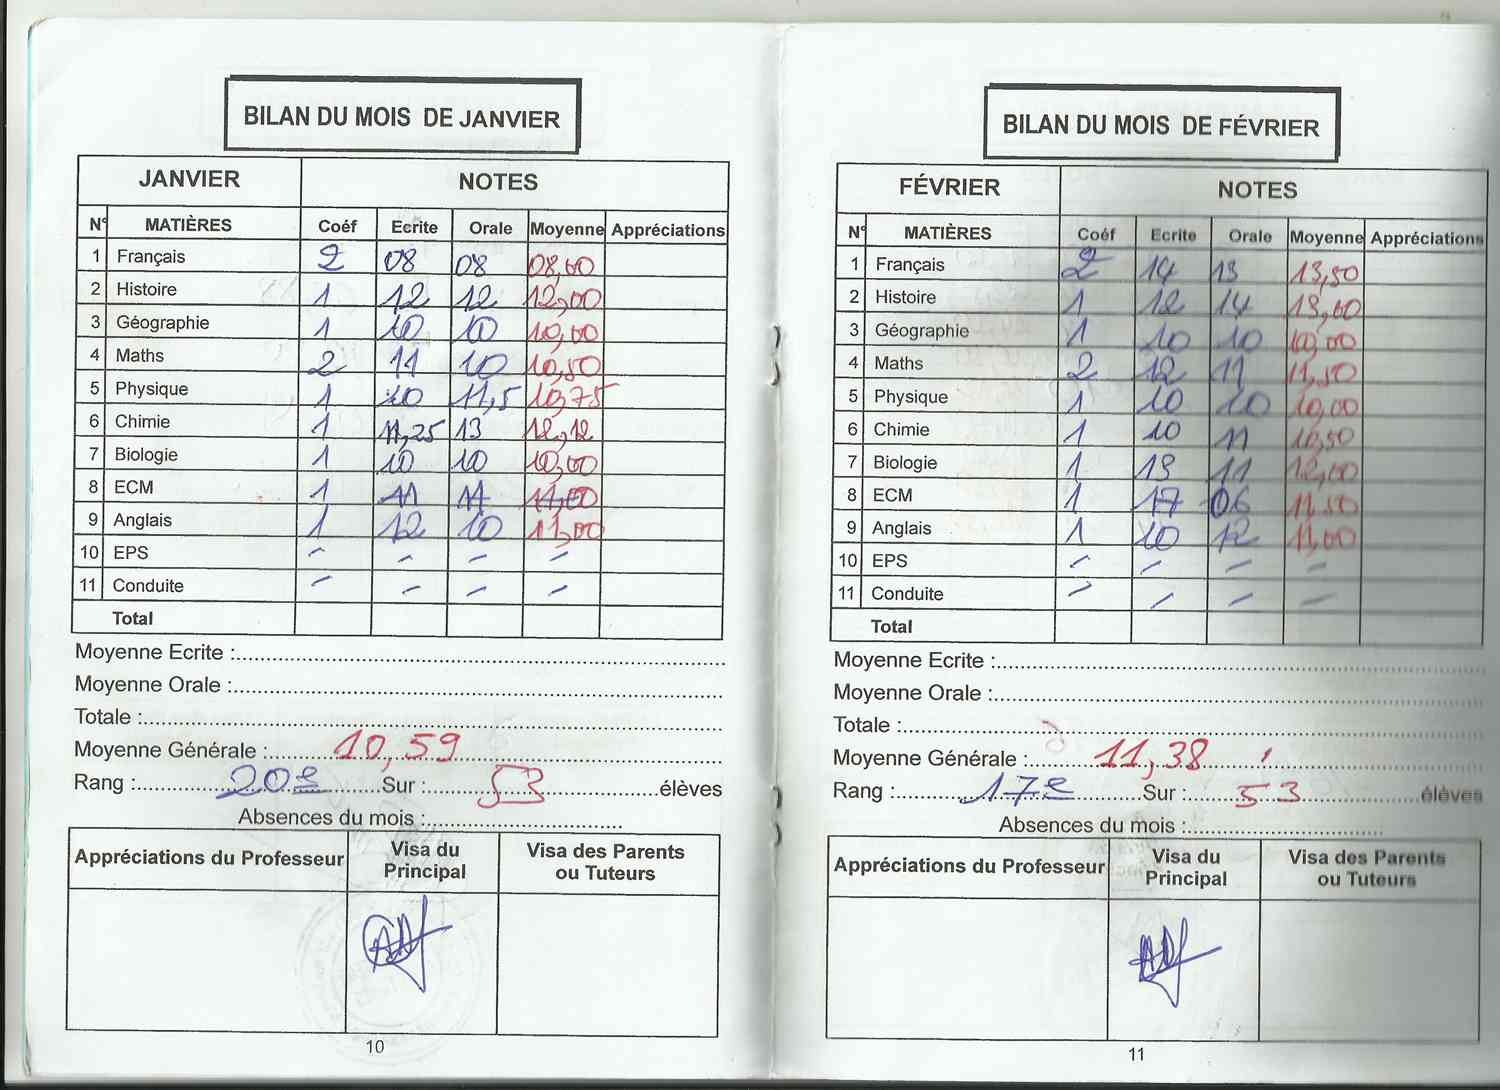 BILAN DU MOIS DE JANVIER
JANVIER NOTES
N° MATIÈRES Coéf Ecrite Orale Moyenne Appréciations
1 Français 2 08 08 08,00
2 Histoire 1 12 12 12,00
3 Géographie 1 10 10 10,00
4 Maths 2 11 10 10,50
5 Physique 1 10 11,5 10,75
6 Chimie 1 11,25 13 12,12
7 Biologie 1 10 10 10,00
8 ECM 1 11 11 11,00
9 Anglais 1 12 10 11,00
10 EPS - - - -
11 Conduite - - - -
Total
Moyenne Ecrite :
Moyenne Orale :
Totale :
Moyenne Générale : 10,59
Rang : 20e Sur : 53 élèves
Absences du mois :
Appréciations du Professeur Visa du Principal Visa des Parents ou Tuteurs
10
BILAN DU MOIS DE FÉVRIER
FÉVRIER NOTES
N° MATIÈRES Coéf Ecrite Orale Moyenne Appréciations
1 Français 2 14 13 13,50
2 Histoire 1 12 14 13,00
3 Géographie 1 10 10 10,00
4 Maths 2 12 11 11,50
5 Physique 1 10 10 10,00
6 Chimie 1 10 11 10,50
7 Biologie 1 13 11 12,00
8 ECM 1 17 06 11,50
9 Anglais 1 10 12 11,00
10 EPS - - - -
11 Conduite - - - -
Total
Moyenne Ecrite :
Moyenne Orale :
Totale :
Moyenne Générale : 11,38
Rang : 17e Sur : 53 élèves
Absences du mois :
Appréciations du Professeur Visa du Principal Visa des Parents ou Tuteurs
11